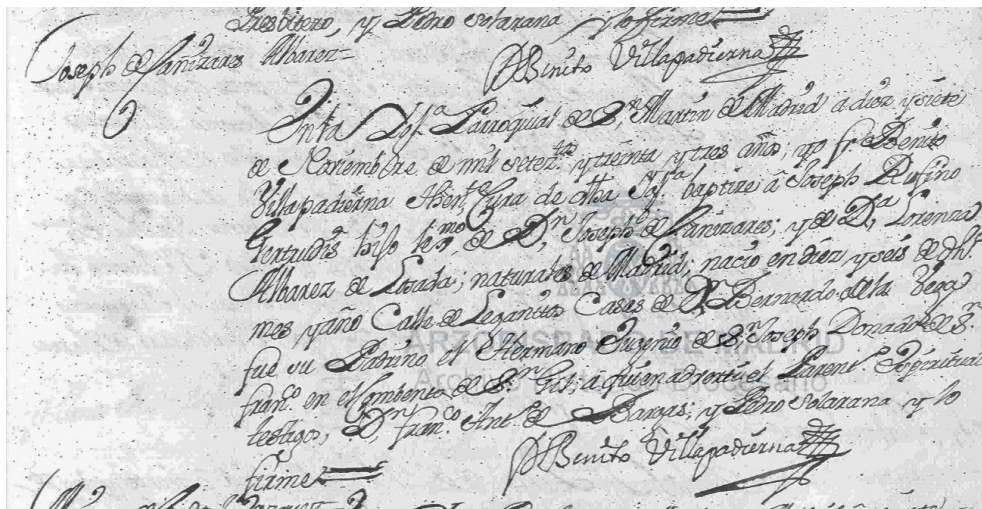 Presbitero, y Pedro Solarana y lo firme
Joseph de Cañizares Albarez
Benito Villapadierna
En la Igl.ª Parroquial de S.n Martin de Madrid a diez y siete
de Noviembre de mil setez.tos y treinta y tres años; yo fr Benito
Villapadierna Thent.e Cura de dha Igl.ª baptize â Joseph Rufino
Gertrudis hijo lex.mo de D.n Joseph de Cañizares; y de D.ª Lorenza
Albarez de Losada; naturales de Madrid; nacio en diez y seis de dho.
mes y año Calle de Leganitos Casas de D.n Bernardo de la Vega
fue su Padrino el Hermano Eugenio de S.n Joseph Donado de S.n
fran.co en el Combento de S.n Gil; â quien adverti el Parent.º Espiritual
testigos, D.n fran.co Ant.º de Bargas; y Pedro Solarana y lo
firme
Benito Villapadierna
ARZOBISPADO DE MADRID
Archivo Histórico Diocesano